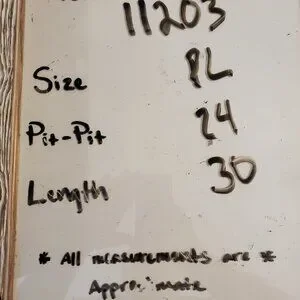 11203
Size PL
Pit-Pit 24
Length 30
* All measurements are *
Approximate